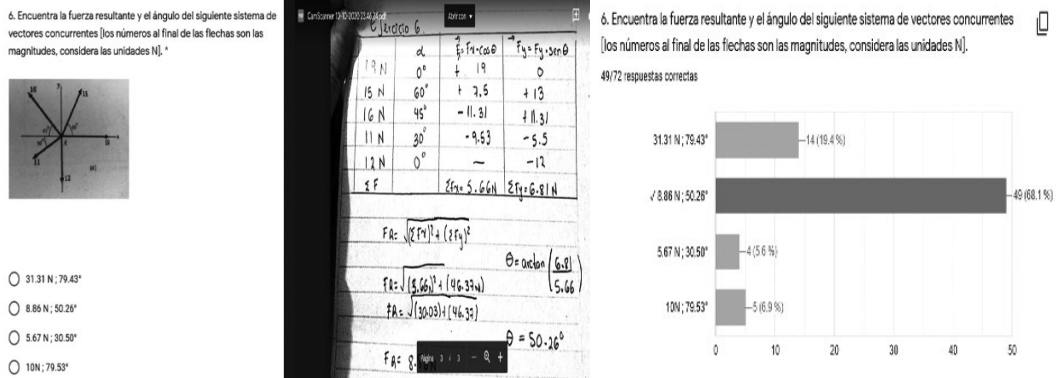 6. Encuentra la fuerza resultante y el ángulo del siguiente sistema de
vectores concurrentes [los números al final de las flechas son las
magnitudes, considera las unidades N]. *
16
y
15
12
31.31 N ; 79.43°
8.86 N ; 50.26°
5.67 N ; 30.50°
10N ; 79.53°
CamScanner 12-10-2020 23.46.24.pdf
Abrir con
Ejercicio 6.
α Fx=Fx·cosθ Fy=Fy·senθ
19 N 0° + 19 0
15 N 60° + 7.5 +13
16 N 45° -11.31 +11.31
11 N 30° -9.53 -5.5
12 N 0° — -12
ΣF ΣFx=5.66N ΣFy=6.81N
FR= √(ΣFx)²+(ΣFy)²
θ= arctan (6.81/5.66)
FR= √(5.66)²+(46.37N)
FR= √(30.03)+(46.37)
θ = 50.26°
FR= 8.
Página 3 / 3
6. Encuentra la fuerza resultante y el ángulo del siguiente sistema de vectores concurrentes
[los números al final de las flechas son las magnitudes, considera las unidades N].
49/72 respuestas correctas
31.31 N ; 79.43°
14 (19.4 %)
✓ 8.86 N ; 50.26°
49 (68.1 %)
5.67 N ; 30.50°
4 (5.6 %)
10N ; 79.53°
5 (6.9 %)
0 10 20 30 40 50